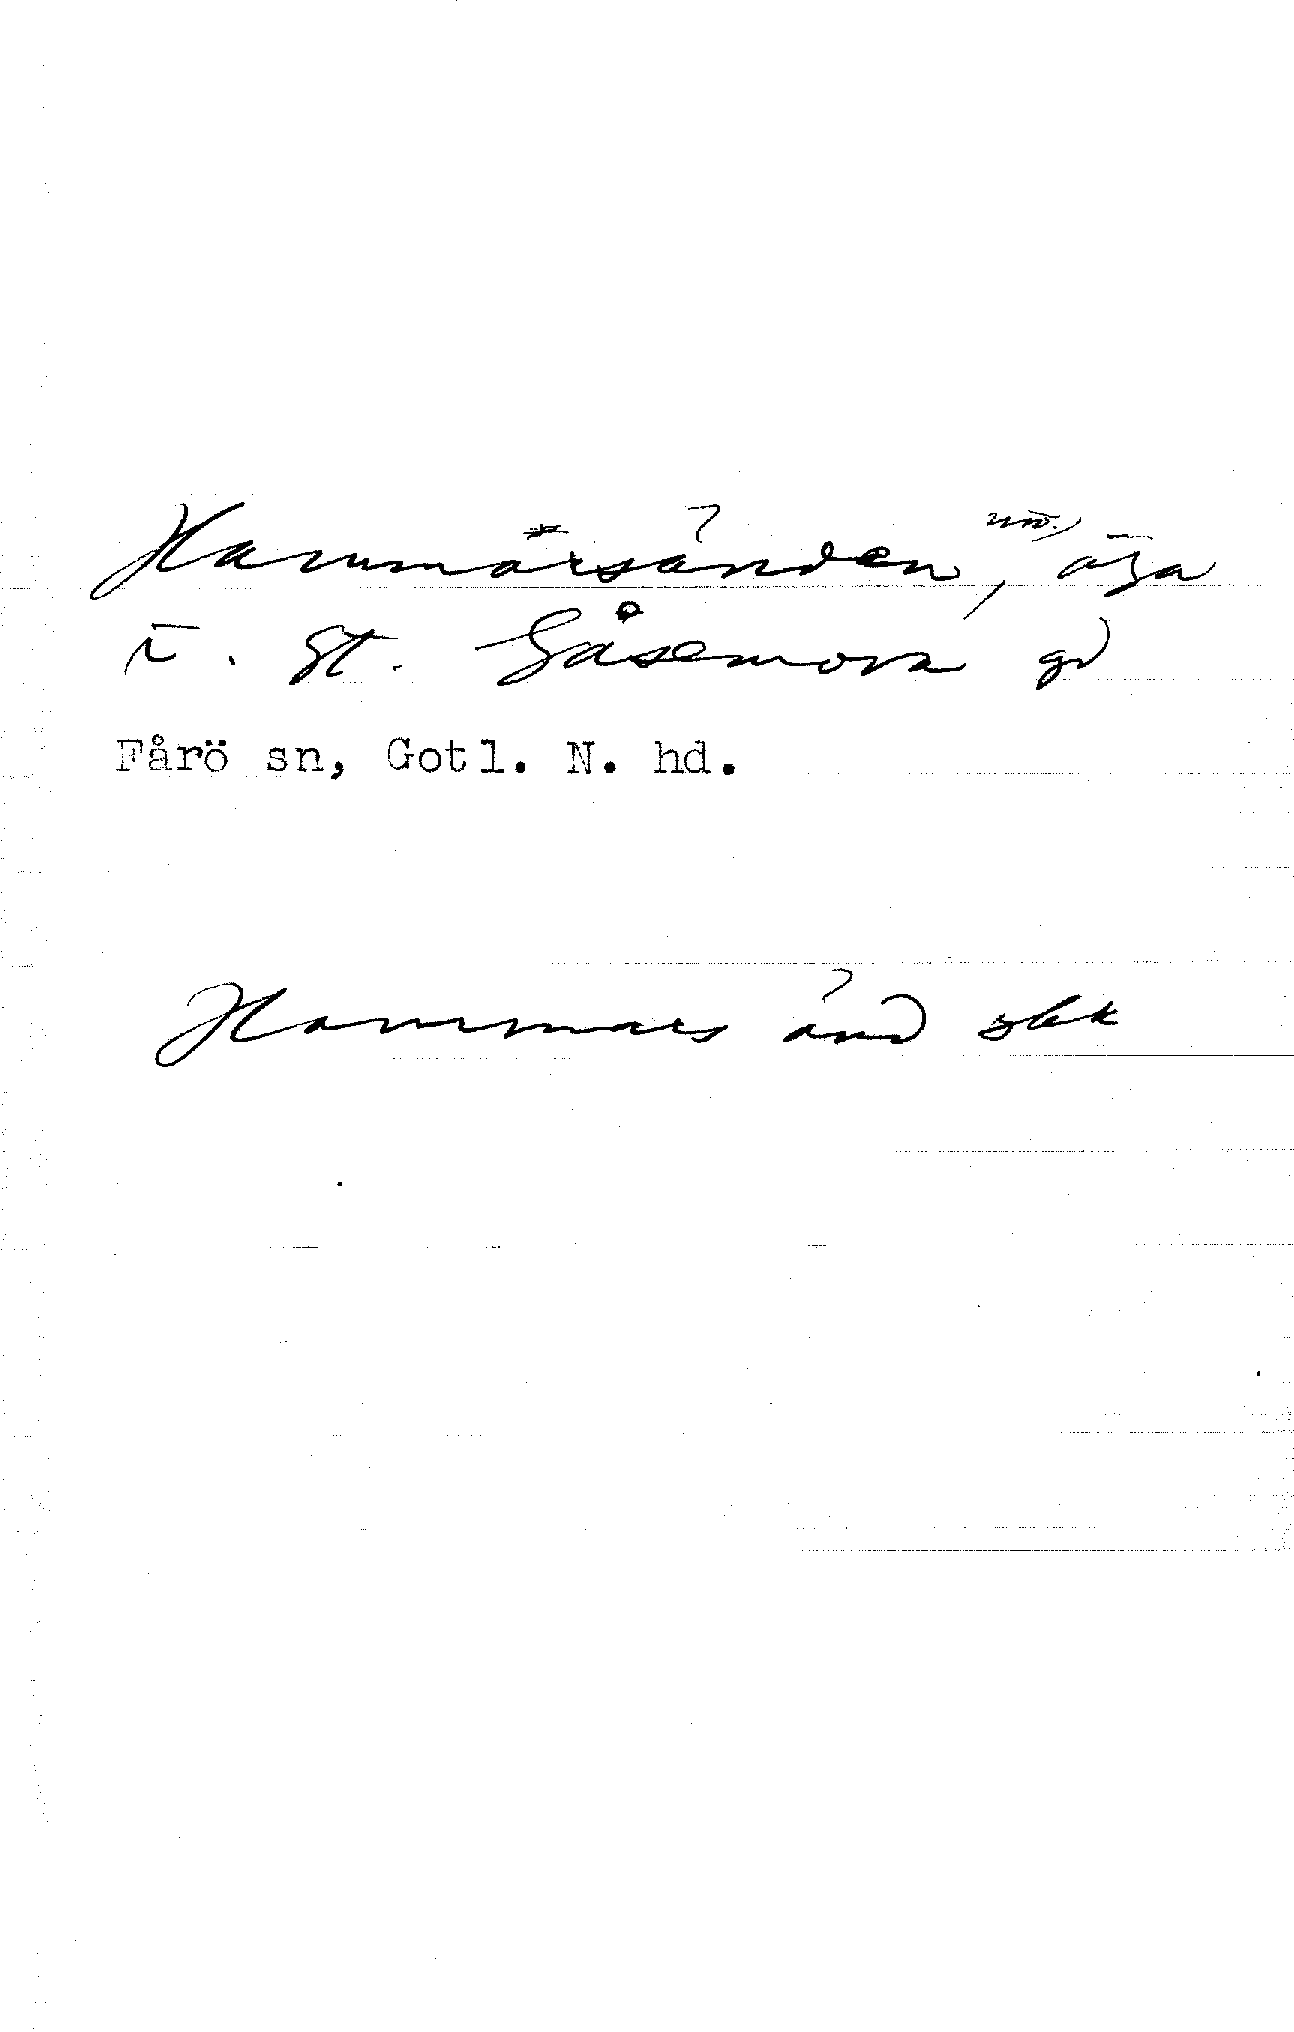 Hammarsänden, äga
t. St. Gåsemora gd
Fårö sn, Gotl. N. hd.
Hammars änd sbk